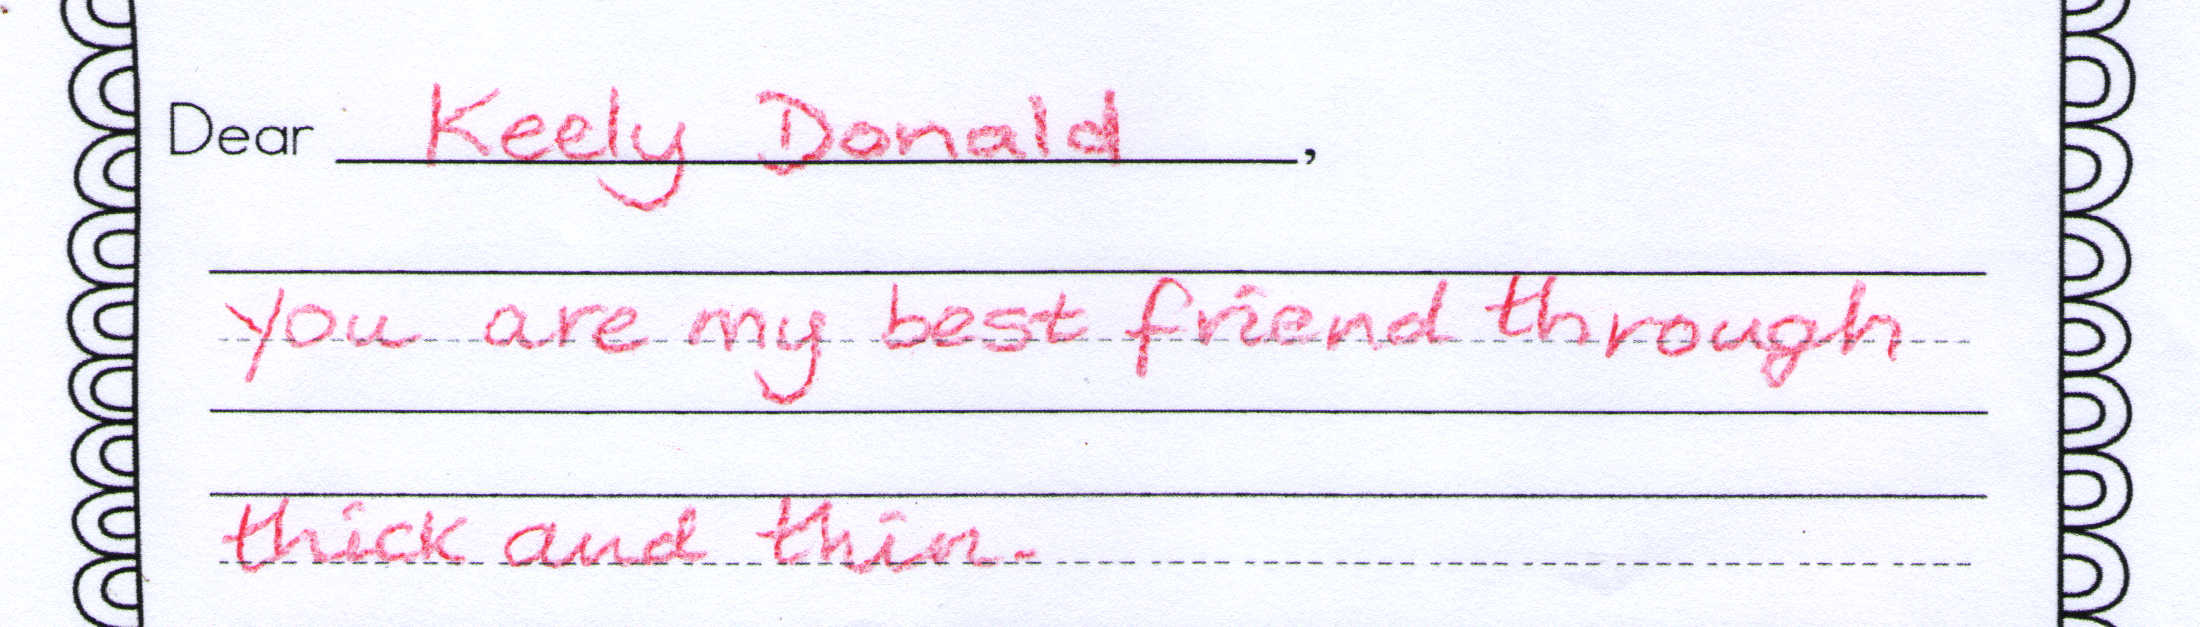 Dear Keely Donald,
you are my best friend through
thick and thin.